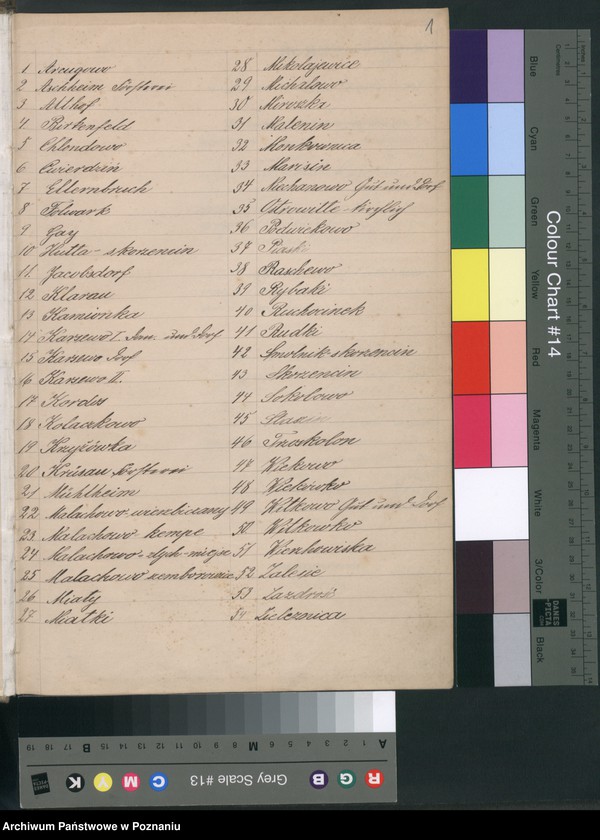 1
1 Arcugowo
2 Aschheim Försterei
3 Althof
4 Birkenfeld
5 Chlondowo
6 Cwierdzin
7 Ellernbruch
8 Folwark
9 Gay
10 Hutta - skorzencin
11 Jacobsdorf
12 Klarau
13 Kamionka
14 Karsewo I. Dom. und Dorf
15 Karsewo Dorf
16 Karsewo II.
17 Kordos
18 Kolaczkowo
19 Krzyżówka
20 Krüsau Försterei
21 Mühlheim
22 Malachowo-wierzbiczany
23 Malachowo kempe
24 Malachowo-zlych-miejsc
25 Malachowo szemborowice
26 Miaty
27 Miatki
28 Mikolajewice
29 Michalowo
30 Miroszka
31 Malenin
32 Monkownica
33 Marizin
34 Niechanowo Gut und Dorf
35 Ostrowitte-kirchlich
36 Podwiekowo
37 Piaski
38 Raschewo
39 Rybaki
40 Ruchocinek
41 Rudki
42 Smolnik-skorzencin
43 Skorzencin
44 Sokolowo
45
46 Trzoskolon
47 Wiekowo
48 Wiekowko
49 Witkowo Gut und Dorf
50 Witkowko
51 Wierzchowiska
52 Zalesie
53 Zazdrość
54 Zeleznica
Colour Chart #14
Blue
Cyan
Green
Yellow
Red
Magenta
White
3/Color
Black
Centimetres
Inches
DANES
PICTA
.COM
Grey Scale #13
R G B C M Y K
A 1 2 3 4 5 6 M 8 9 10 11 12 13 14 15 B 17 18 19
Archiwum Państwowe w Poznaniu
www.szukajwarchiwach.pl